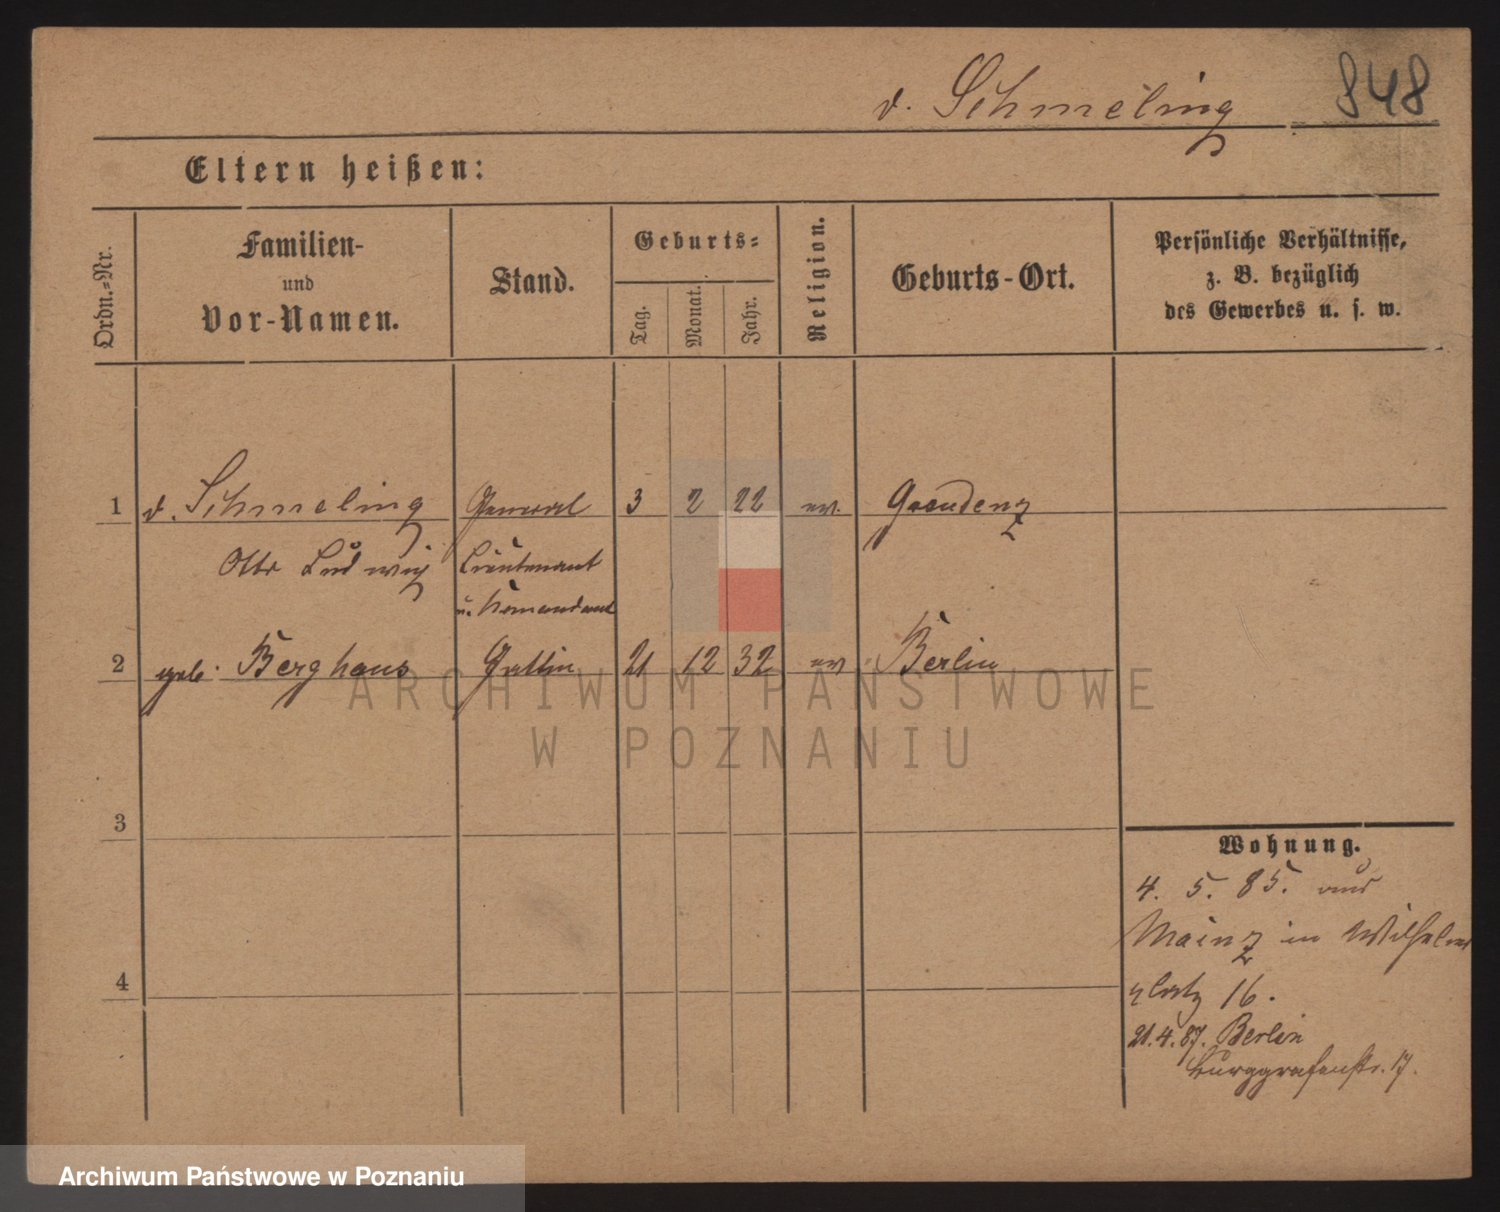 v. Schmeling 848
Eltern heißen:
Ordn.=Nr.
Familien-
und
Vor-Namen.
Stand.
Geburts=
Tag.
Monat.
Jahr.
Religion.
Geburts-Ort.
Persönliche Verhältnisse,
z. B. bezüglich
des Gewerbes u. s. w.
1 v. Schmeling General 3 2 22 ev. Graudenz
Otto Ludwig Lieutenant
u. Komandant
2 geb. Berghaus Gattin 21 12 32 ev Berlin
ARCHIWUM PAŃSTWOWE
W POZNANIU
3
Wohnung.
4. 5. 85. aus
Mainz in Wilhelms
4
platz 16.
21.4.87. Berlin
Burggrafenstr. 17.
Archiwum Państwowe w Poznaniu